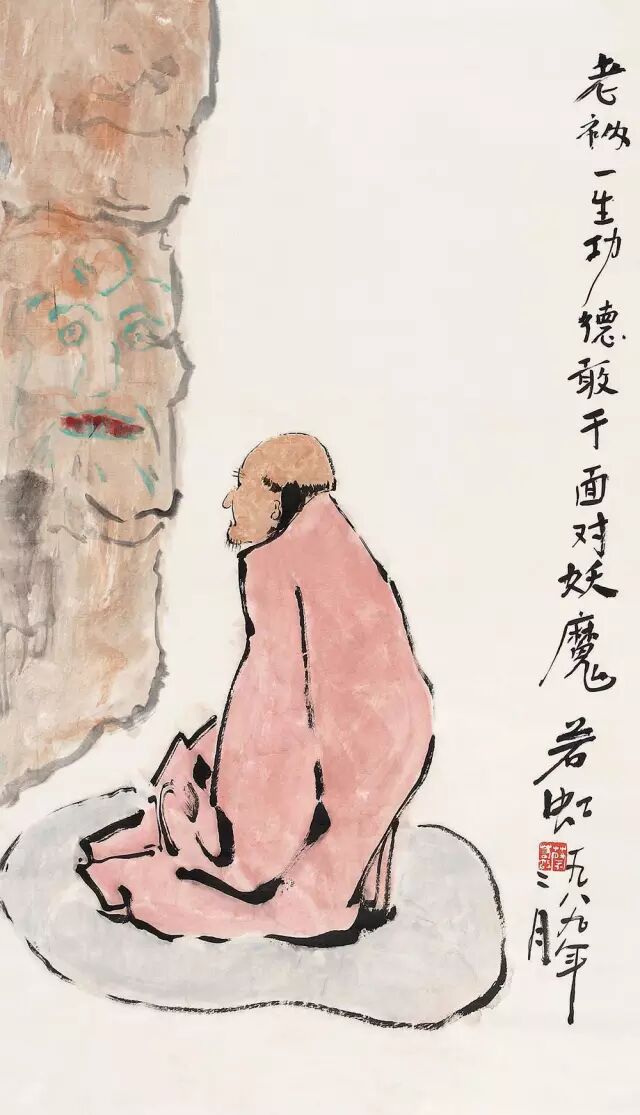 老衲一生功德敢于面对妖魔 若虹一九八九年
二月